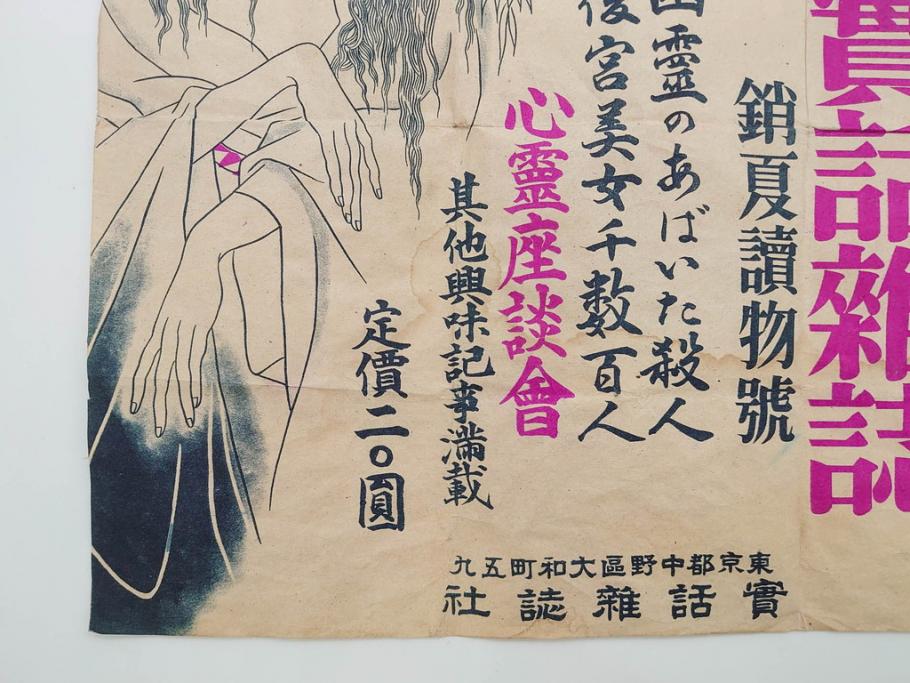 實話雜誌
銷夏讀物號
幽靈のあばいた殺人
後宮美女千数百人
心靈座談會
其他興味記事滿載
定價二〇圓
東京都中野區大和町五九
實話雜誌社